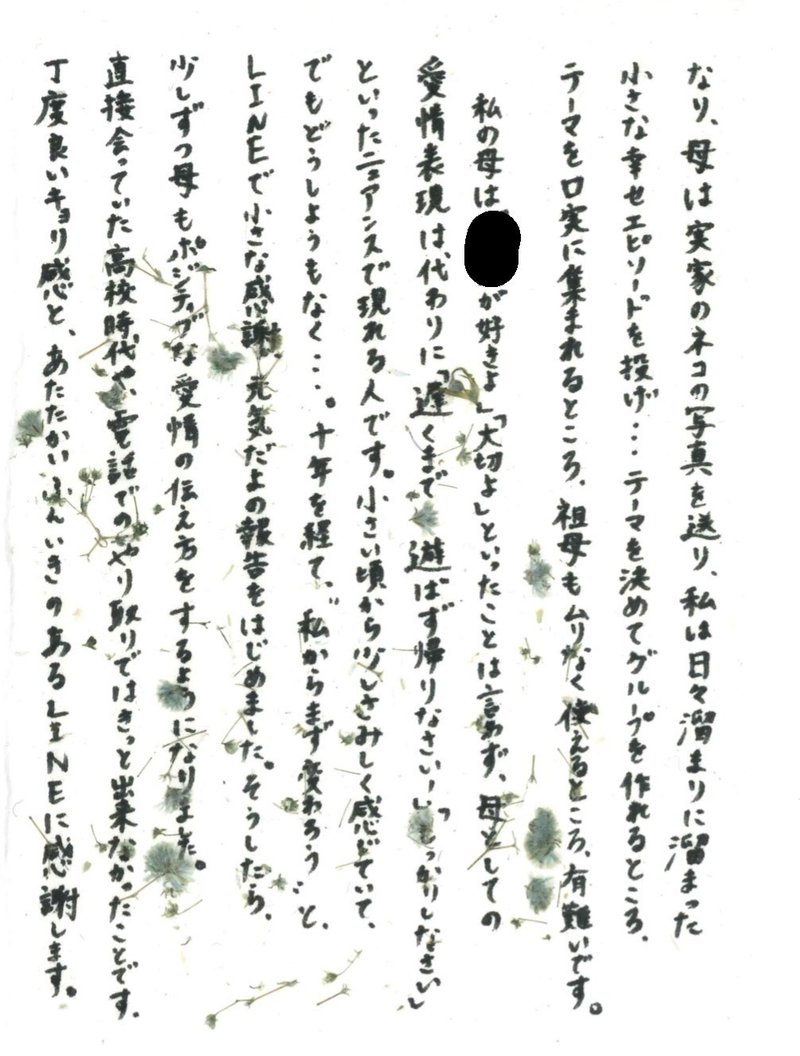 なり、母は実家のネコの写真を送り、私は日々溜まりに溜まった
小さな幸せエピソードを投げ…テーマを決めてグループを作れるところ、
テーマを口実に集まれるところ、祖母もムリなく使えるところ、有難いです。
私の母は「が好きよ」「大切よ」といったことは言わず、母としての
愛情表現は、代わりに「遅くまで遊ばず帰りなさい!」「しっかりしなさい」
といったニュアンスで現れる人です。小さい頃から少しさみしく感じていて、
でもどうしようもなく…。十年を経て、"私からまず変わろう"と、
LINEで小さな感謝、元気だよの報告をはじめました。そうしたら、
少しずつ母もポジティブな愛情の伝え方をするようになりました。
直接会っていた高校時代や、電話でのやり取りではきっと出来なかったことです。
丁度良いキョリ感と、あたたかいふんいきのあるLINEに感謝します。